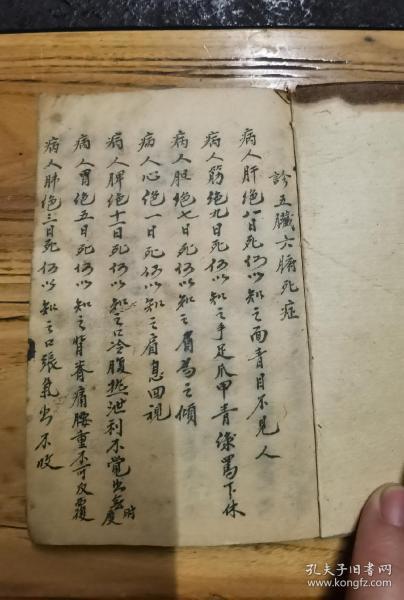 診五臟六腑死症
病人肝绝八日死何以知之面青目不見人
病人筋绝九日死何以知之手足爪甲青條罵不休
病人胆绝七日死何以知之眉为之倾
病人心绝一日死何以知之肩息回視
病人脾绝十二日死何以知之口冷腹热泄利不覺出無時度
病人胃绝五日死何以知之背脊痛腰重不可反覆
病人肺绝三日死何以知之口張氣出不收
孔夫子旧书网
www.kongfz.com